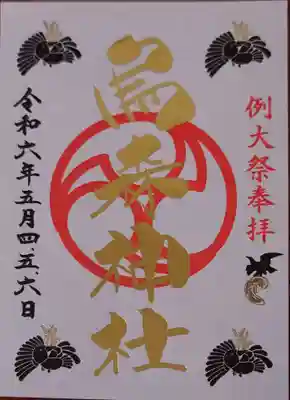 例大祭奉拝
烏森神社
令和六年五月四五、六日